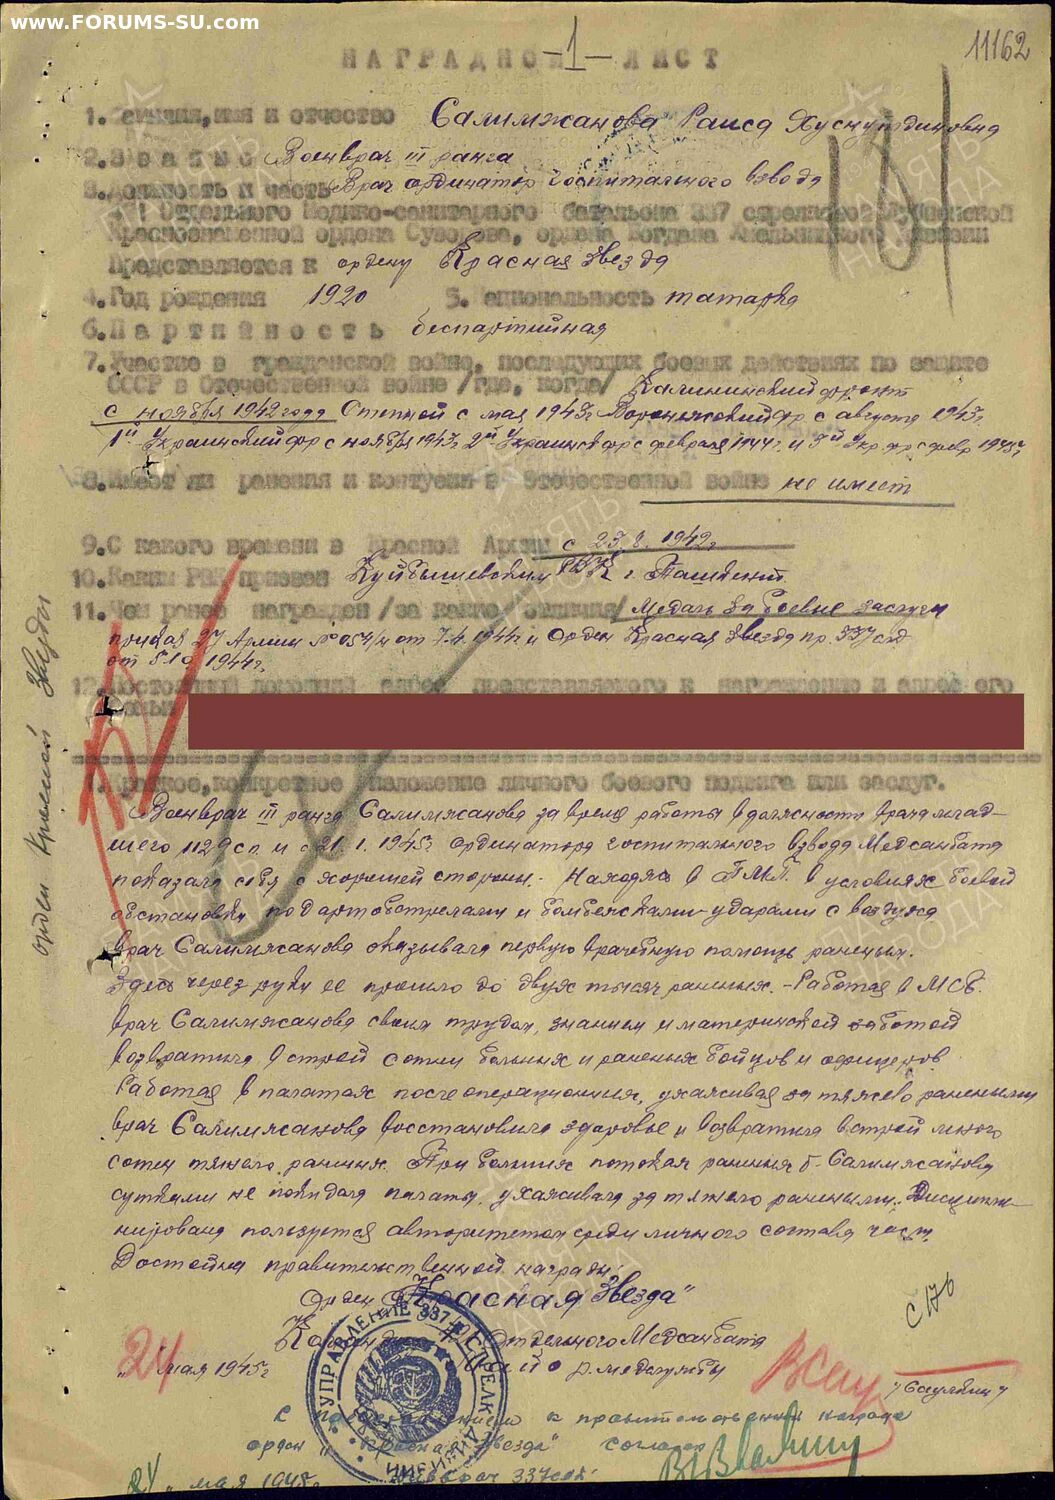 www.FORUMS-SU.com
11162
НАГРАДНОЙ ЛИСТ
-1-
1. Фамилия, имя и отчество Салимжанова Раиса Хуснутдиновна
2. Звание Военврач III ранга
3. Должность и часть Врач ординатор госпитального взвода
Отдельного Медико-санитарного батальона 337 стрелковой Лубненской
Краснознаменной ордена Суворова, ордена Богдана Хмельницкого дивизии
Представляется к ордену Красная Звезда
4. Год рождения 1920 5. Национальность татарка
6. Партийность беспартийная
7. Участие в гражданской войне, последующих боевых действиях по защите
СССР в Отечественной войне /где, когда/ Калининский фронт
с ноября 1942 года Степной с мая 1943г Воронежский фр с августа 1943г.
1й Украинский фр с ноября 1943г. 2й Украинск фр с февраля 1944г. и 3й Укр. фр с февр 1945г.
8. Имеет ли ранения и контузии в Отечественной войне не имеет
9. С какого времени в Красной Армии с 23.8.1942г
10. Каким РВК призван Куйбышевским РВК г. Ташкент.
11. Чем ранее награжден /за какие отличия/ Медаль За боевые заслуги
приказ 27 Армии № 054/н от 7.4.1944г и Орден Красная Звезда пр. 337 сд
от 1944г.
12. Постоянный домашний адрес представляемого к награждению и адрес его
семьи
орден Красной Звезды
1. Краткое, конкретное изложение личного боевого подвига или заслуг.
Военврач III ранга Салимжанова за время работы в должности врача млад-
шего 1129 сп. и с 21.1.1945г. ординатора госпитального взвода Медсанбата
показала себя с хорошей стороны. Находясь в П.М.П. в условиях боевой
обстановки под артобстрелами и бомбежками-ударами с воздуха
врач Салимжанова оказывала первую врачебную помощь раненым.
Здесь через руки ее прошло до двух тысяч раненых. - Работая в МСБ.
врач Салимжанова своим трудом, знанием и материнской заботой
возвратила в строй сотни больных и раненых бойцов и офицеров.
Работая в палатах послеоперационных, ухаживая за тяжело ранеными
врач Салимжанова восстановила здоровье и возвратила в строй много
сотен тяжело раненых. При больших потоках раненых т. Салимжанова
сутками не покидала палаты, ухаживала за тяжело ранеными. Дисципли-
нирована пользуется авторитетом среди личного состава части.
Достойна правительственной награды:
Орден „Красная Звезда"
Командир Отдельного Медсанбата
майор медслужбы
24 мая 1945г
С представлением к правительственной награде
орден „Красная Звезда" согласен
24 „ мая 1945г. 337 сд
УПРАВЛЕНИЕ 337 СТРЕЛК ДИВИЗИИ